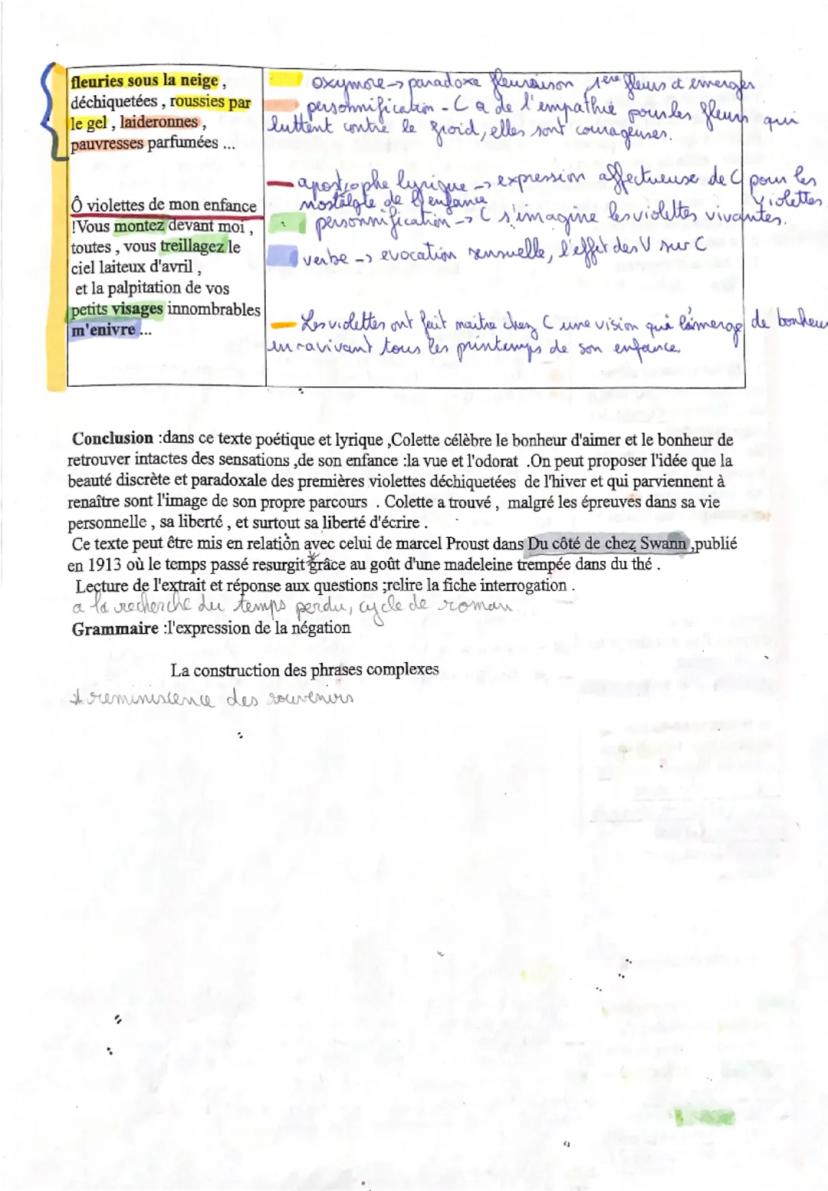 fleuries sous la neige ,
déchiquetées , roussies par
le gel , laideronnes ,
pauvresses parfumées ...
Ô violettes de mon enfance
!Vous montez devant moi ,
toutes , vous treillagez le
ciel laiteux d'avril ,
et la palpitation de vos
petits visages innombrables
m'enivre ...
oxymore -> paradoxe fleuraison 1ère fleurs à emerger
personnification - C a de l'empathie pour les fleurs qui
luttent contre le froid, elles sont courageuses.
apostrophe lyrique -> expression affectueuse de C pour les violettes
nostalgie de l'enfance
personnification -> C s'imagine les violettes vivantes.
verbe -> evocation sensuelle, l'effet des V sur C
Les violettes ont fait naitre chez C une vision qui de bonheur
en ravivant tous les printemps de son enfance.
Conclusion :dans ce texte poétique et lyrique ,Colette célèbre le bonheur d'aimer et le bonheur de
retrouver intactes des sensations ,de son enfance :la vue et l'odorat .On peut proposer l'idée que la
beauté discrète et paradoxale des premières violettes déchiquetées de l'hiver et qui parviennent à
renaître sont l'image de son propre parcours . Colette a trouvé , malgré les épreuves dans sa vie
personnelle , sa liberté , et surtout sa liberté d'écrire .
Ce texte peut être mis en relation avec celui de marcel Proust dans Du côté de chez Swann ,publié
en 1913 où le temps passé resurgit* grâce au goût d'une madeleine trempée dans du thé .
Lecture de l'extrait et réponse aux questions ;relire la fiche interrogation .
a la recherche du temps perdu, cycle de roman
Grammaire :l'expression de la négation
La construction des phrases complexes
* reminiscence des souvenirs